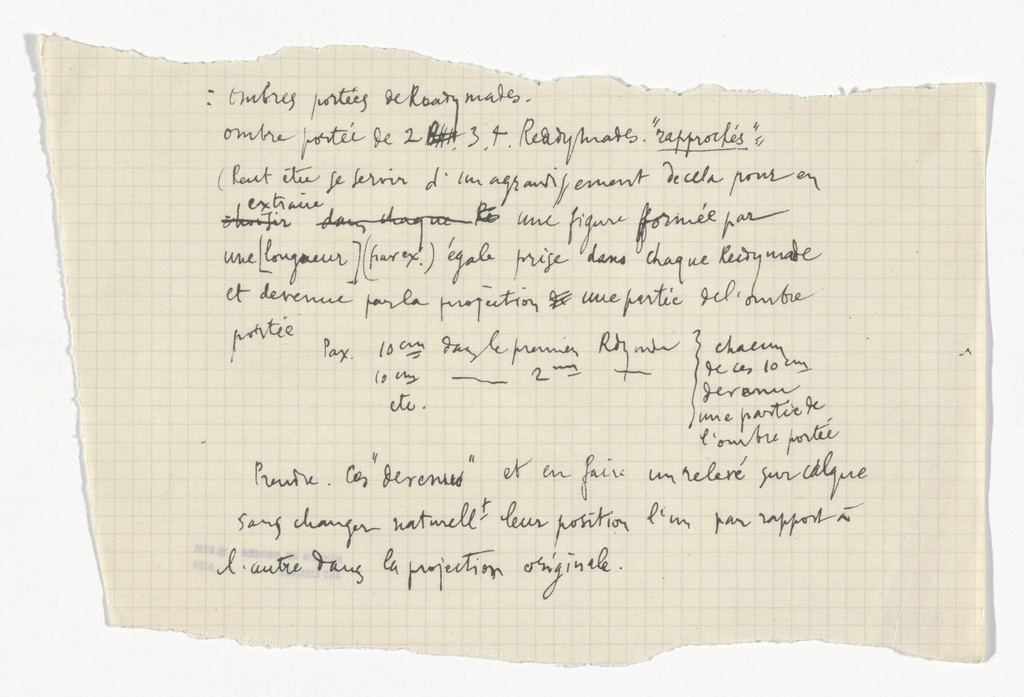 : Ombres portées de Readymades.
ombre portée de 2. 3. 4. Readymades. "rapprochés"
(Peut être se servir d'un agrandissement de cela pour en
extraire
choisir dans chaque Re une figure formée par
une [longueur] (par ex.) égale prise dans chaque Readymade
et devenue par la projection une partie de l'ombre
portée
Pax. 10 cm dans le premier Rdymade
10 cm — 2me —
etc.
chacun
de ces 10 cm
devenu
une partie de
l'ombre portée
Prendre. Ces "devenus" et en faire un relevé sur calque
sans changer naturellt leur position l'un par rapport à
l'autre dans la projection originale.